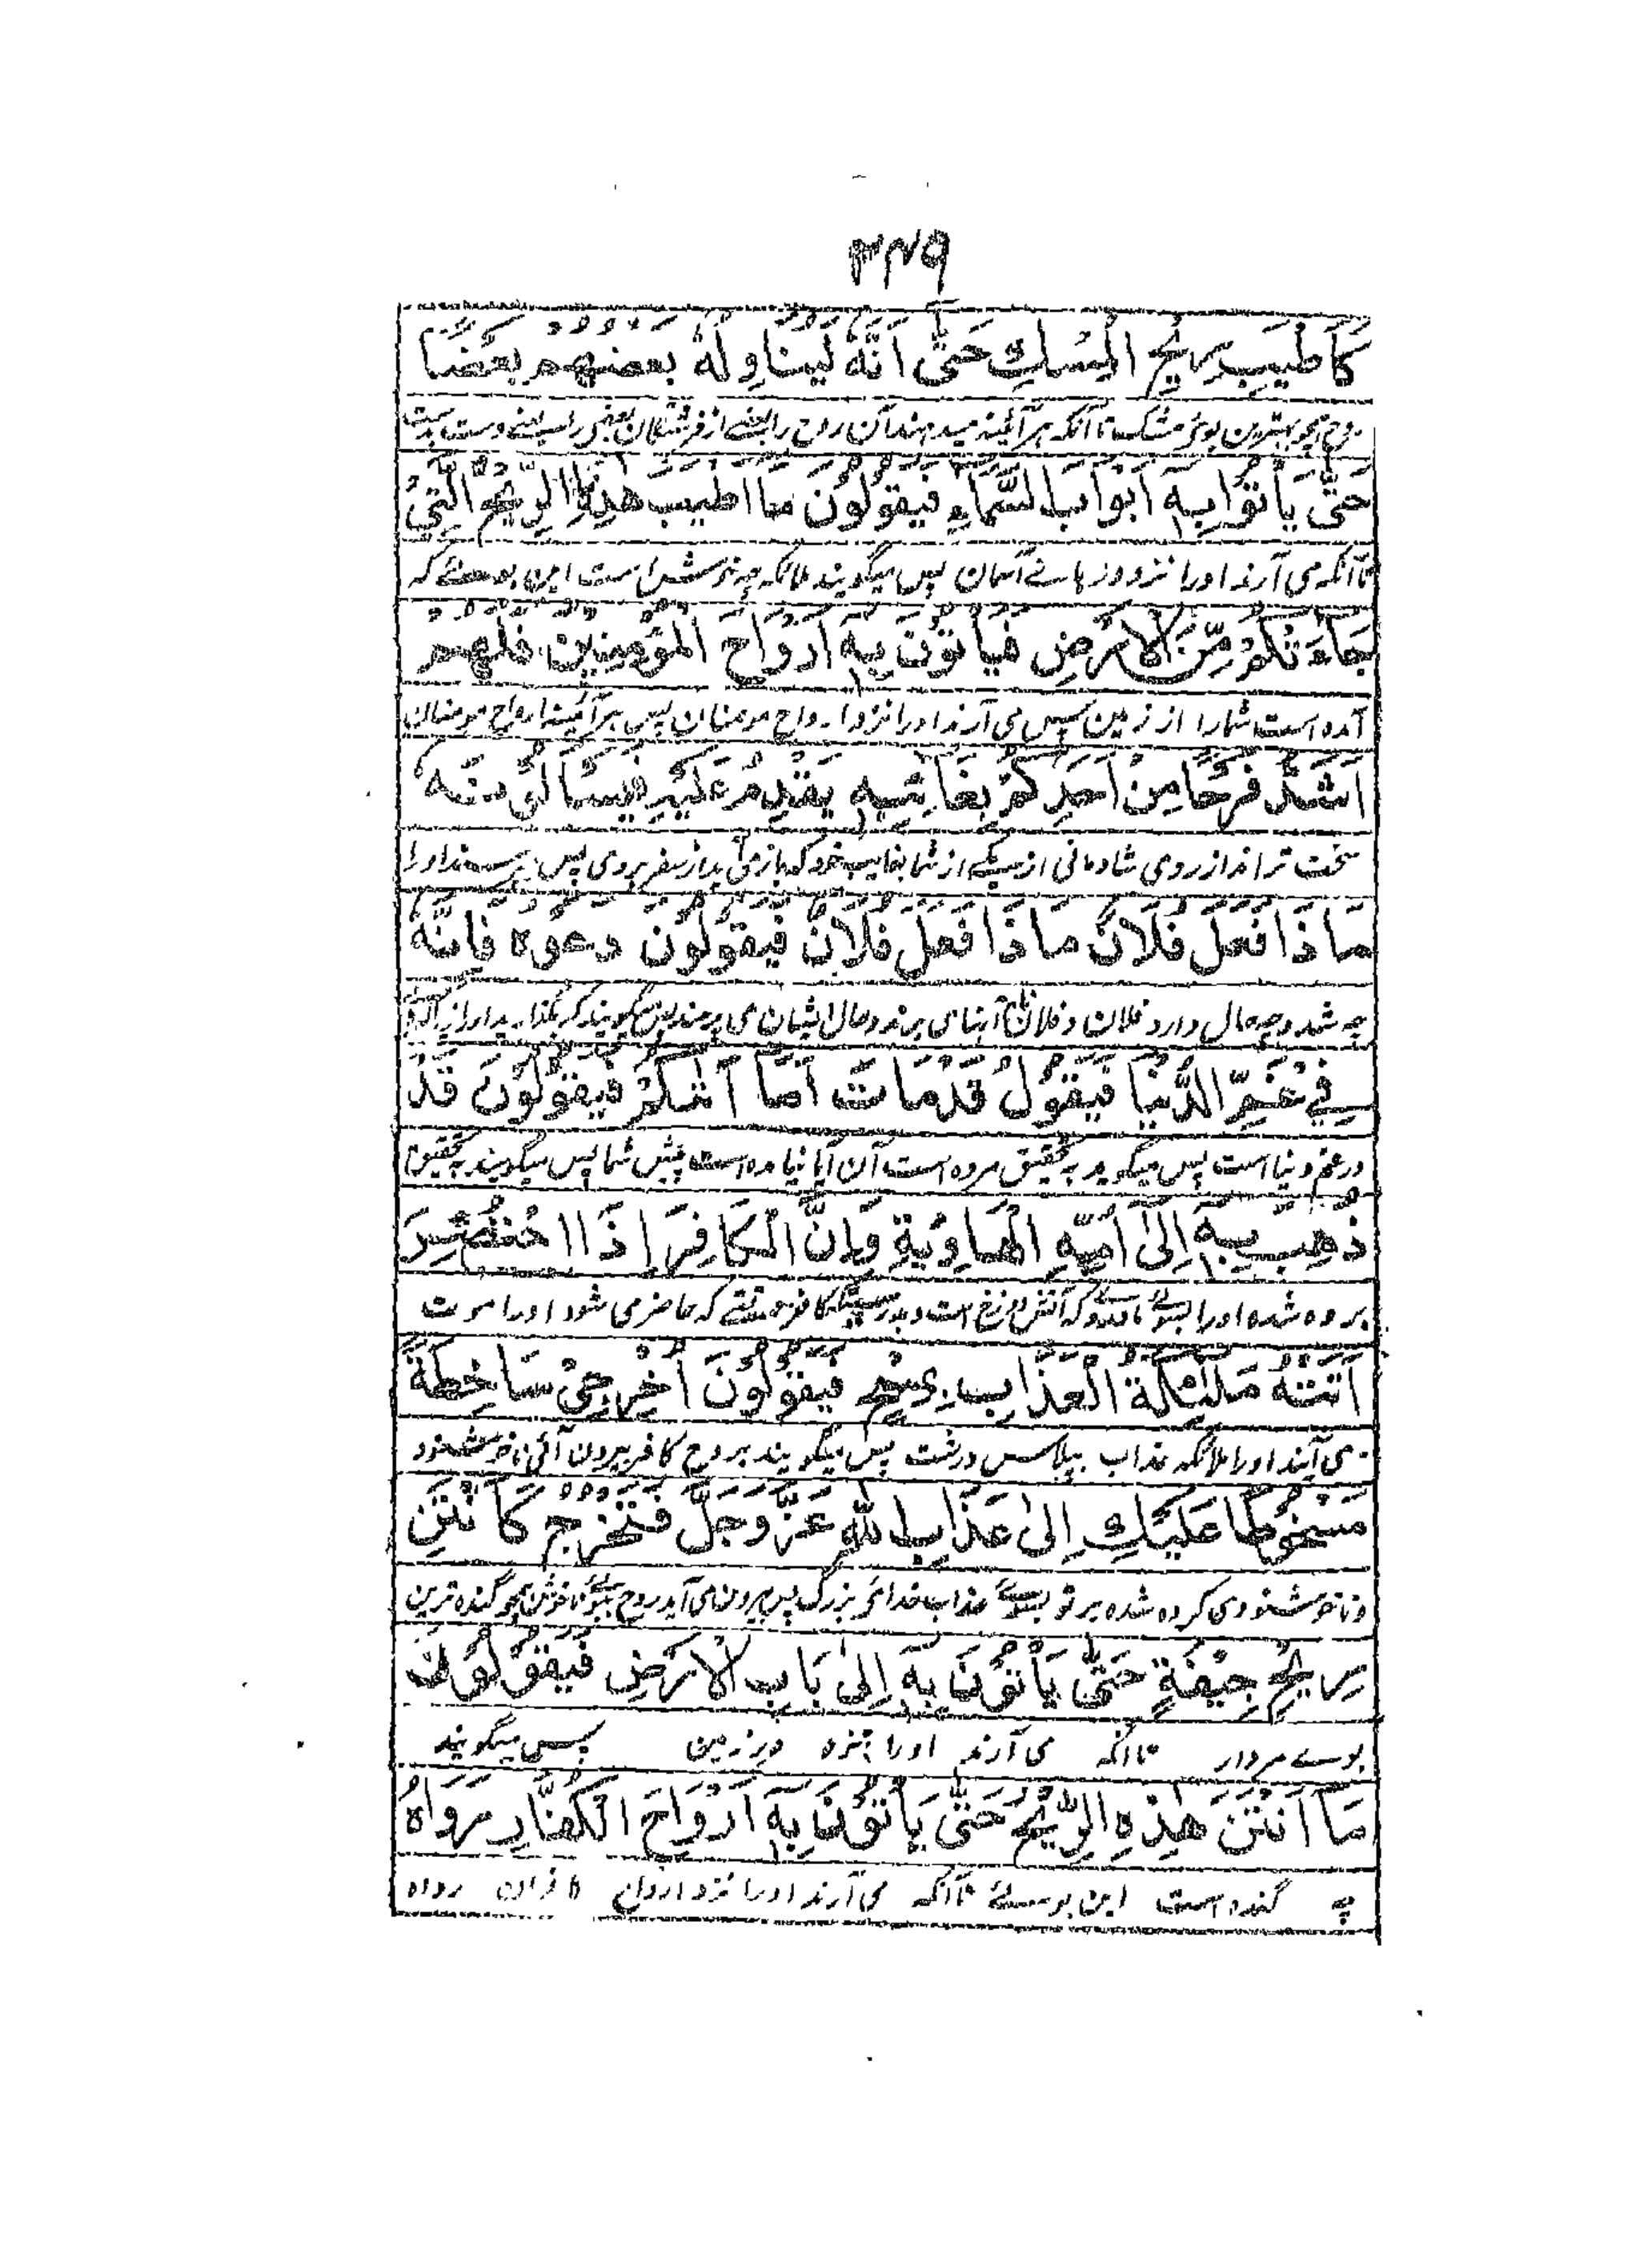 ۳۴۹
كَاَطْيَبِ رِيْحِ الْمِسْكِ حَتّٰى اَنَّهٗ لَيُنَاوِلُهٗ بَعْضُهُمْ بَعْضًا
روح همچو بهترین بوئے مشک تا آنکه هر آئینه میدهند آن روح را بعضے از فرشتگان بعضی را یعنے دست بدست
حَتّٰى يَأْتُوْا بِهٖ اَبْوَابَ السَّمَاءِ فَيَقُوْلُوْنَ مَا اَطْيَبَ هٰذِهِ الرِّيْحُ الَّتِيْ
تا آنکه می آرند اورا نزد در هائے آسمان پس میگویند ملائکه چه خوش است این بوئے که
جَاءَتْكُمْ مِّنَ الْاَرْضِ فَيَأْتُوْنَ بِهٖ اَرْوَاحَ الْمُؤْمِنِيْنَ فَلَهُمْ
آمده است شمارا از زمین پس می آرند اورا نزد ارواح مومنان پس هر آئینه ارواح مومنان
اَشَدُّ فَرَحًا مِنْ اَحَدِكُمْ بِغَائِبِهٖ يَقْدَمُ عَلَيْهِ فَيَسْأَلُوْنَهٗ
سخت تر اند از روی شادمانی از یکے از شما بغایب خود که باز می آید از سفر بروی پس می پرسند اورا
مَاذَا فَعَلَ فُلَانٌ مَاذَا فَعَلَ فُلَانٌ فَيَقُوْلُوْنَ دَعُوْهُ فَاِنَّهٗ
چه شد و چه حال دارد فلان و فلان آنهای برند و حال ایشان می پرسند پس میگویند که بگذارید اورا زیرا که او
فِيْ غَمِّ الدُّنْيَا فَيَقُوْلُ قَدْ مَاتَ اَمَا اَتَاكُمْ فَيَقُوْلُوْنَ قَدْ
در غم دنیا است پس میگوید به تحقیق مرده است آن آیا نیامده است پیش شما پس میگویند به تحقیق
ذُهِبَ بِهٖ اِلٰى اُمِّهِ الْهَاوِيَةِ وَاِنَّ الْكَافِرَ اِذَا احْتُضِرَ
برده شده اورا بسوئے مادر او که آتش دوزخ است و بدرستیکه کافر وقتے که حاضر می شود اورا موت
اَتَتْهُ مَلٰئِكَةُ الْعَذَابِ بِمِسْحٍ فَيَقُوْلُوْنَ اُخْرُجِيْ سَاخِطَةً
می آیند اورا ملائکه عذاب بپلاس درشت پس میگویند بروح کافر بیرون آئی ناخوشنود
مَسْخُوْطًا عَلَيْكِ اِلٰى عَذَابِ اللّٰهِ عَزَّ وَجَلَّ فَتَخْرُجُ كَاَنْتَنِ
و ناخوشنودی کرده شده بر تو بسوئے عذاب خدائے بزرگ پس بیرون می آید روح ببوئے ناخوش همچو گنده ترین
رِيْحِ جِيْفَةٍ حَتّٰى يَأْتُوْنَ بِهٖ اِلٰى بَابِ الْاَرْضِ فَيَقُوْلُوْنَ
بوئے مردار تا آنکه می آرند اورا نزد در زمین پس میگویند
مَا اَنْتَنَ هٰذِهِ الرِّيْحُ حَتّٰى يَأْتُوْنَ بِهٖ اَرْوَاحَ الْكُفَّارِ رَوَاهُ
چه گنده است این بوئے تا آنکه می آرند اورا نزد ارواح کافران رواه